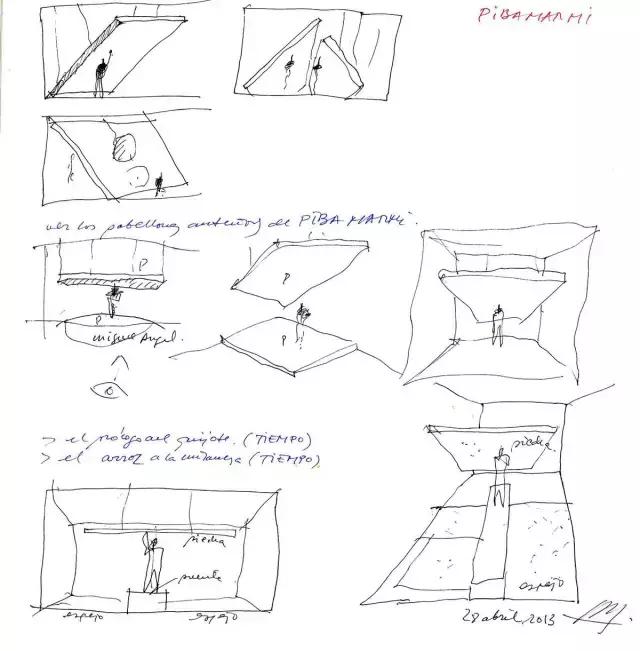 PIBAMARMI
ver los pabellones anteriores de PIBA MARMI.
P
P
miguel Angel.
P
P
> el prólogo del quijote. (TIEMPO)
> el arroz a la milanesa (TIEMPO)
piedra
piedra
puente
espejo
espejo espejo
28 abril 2013